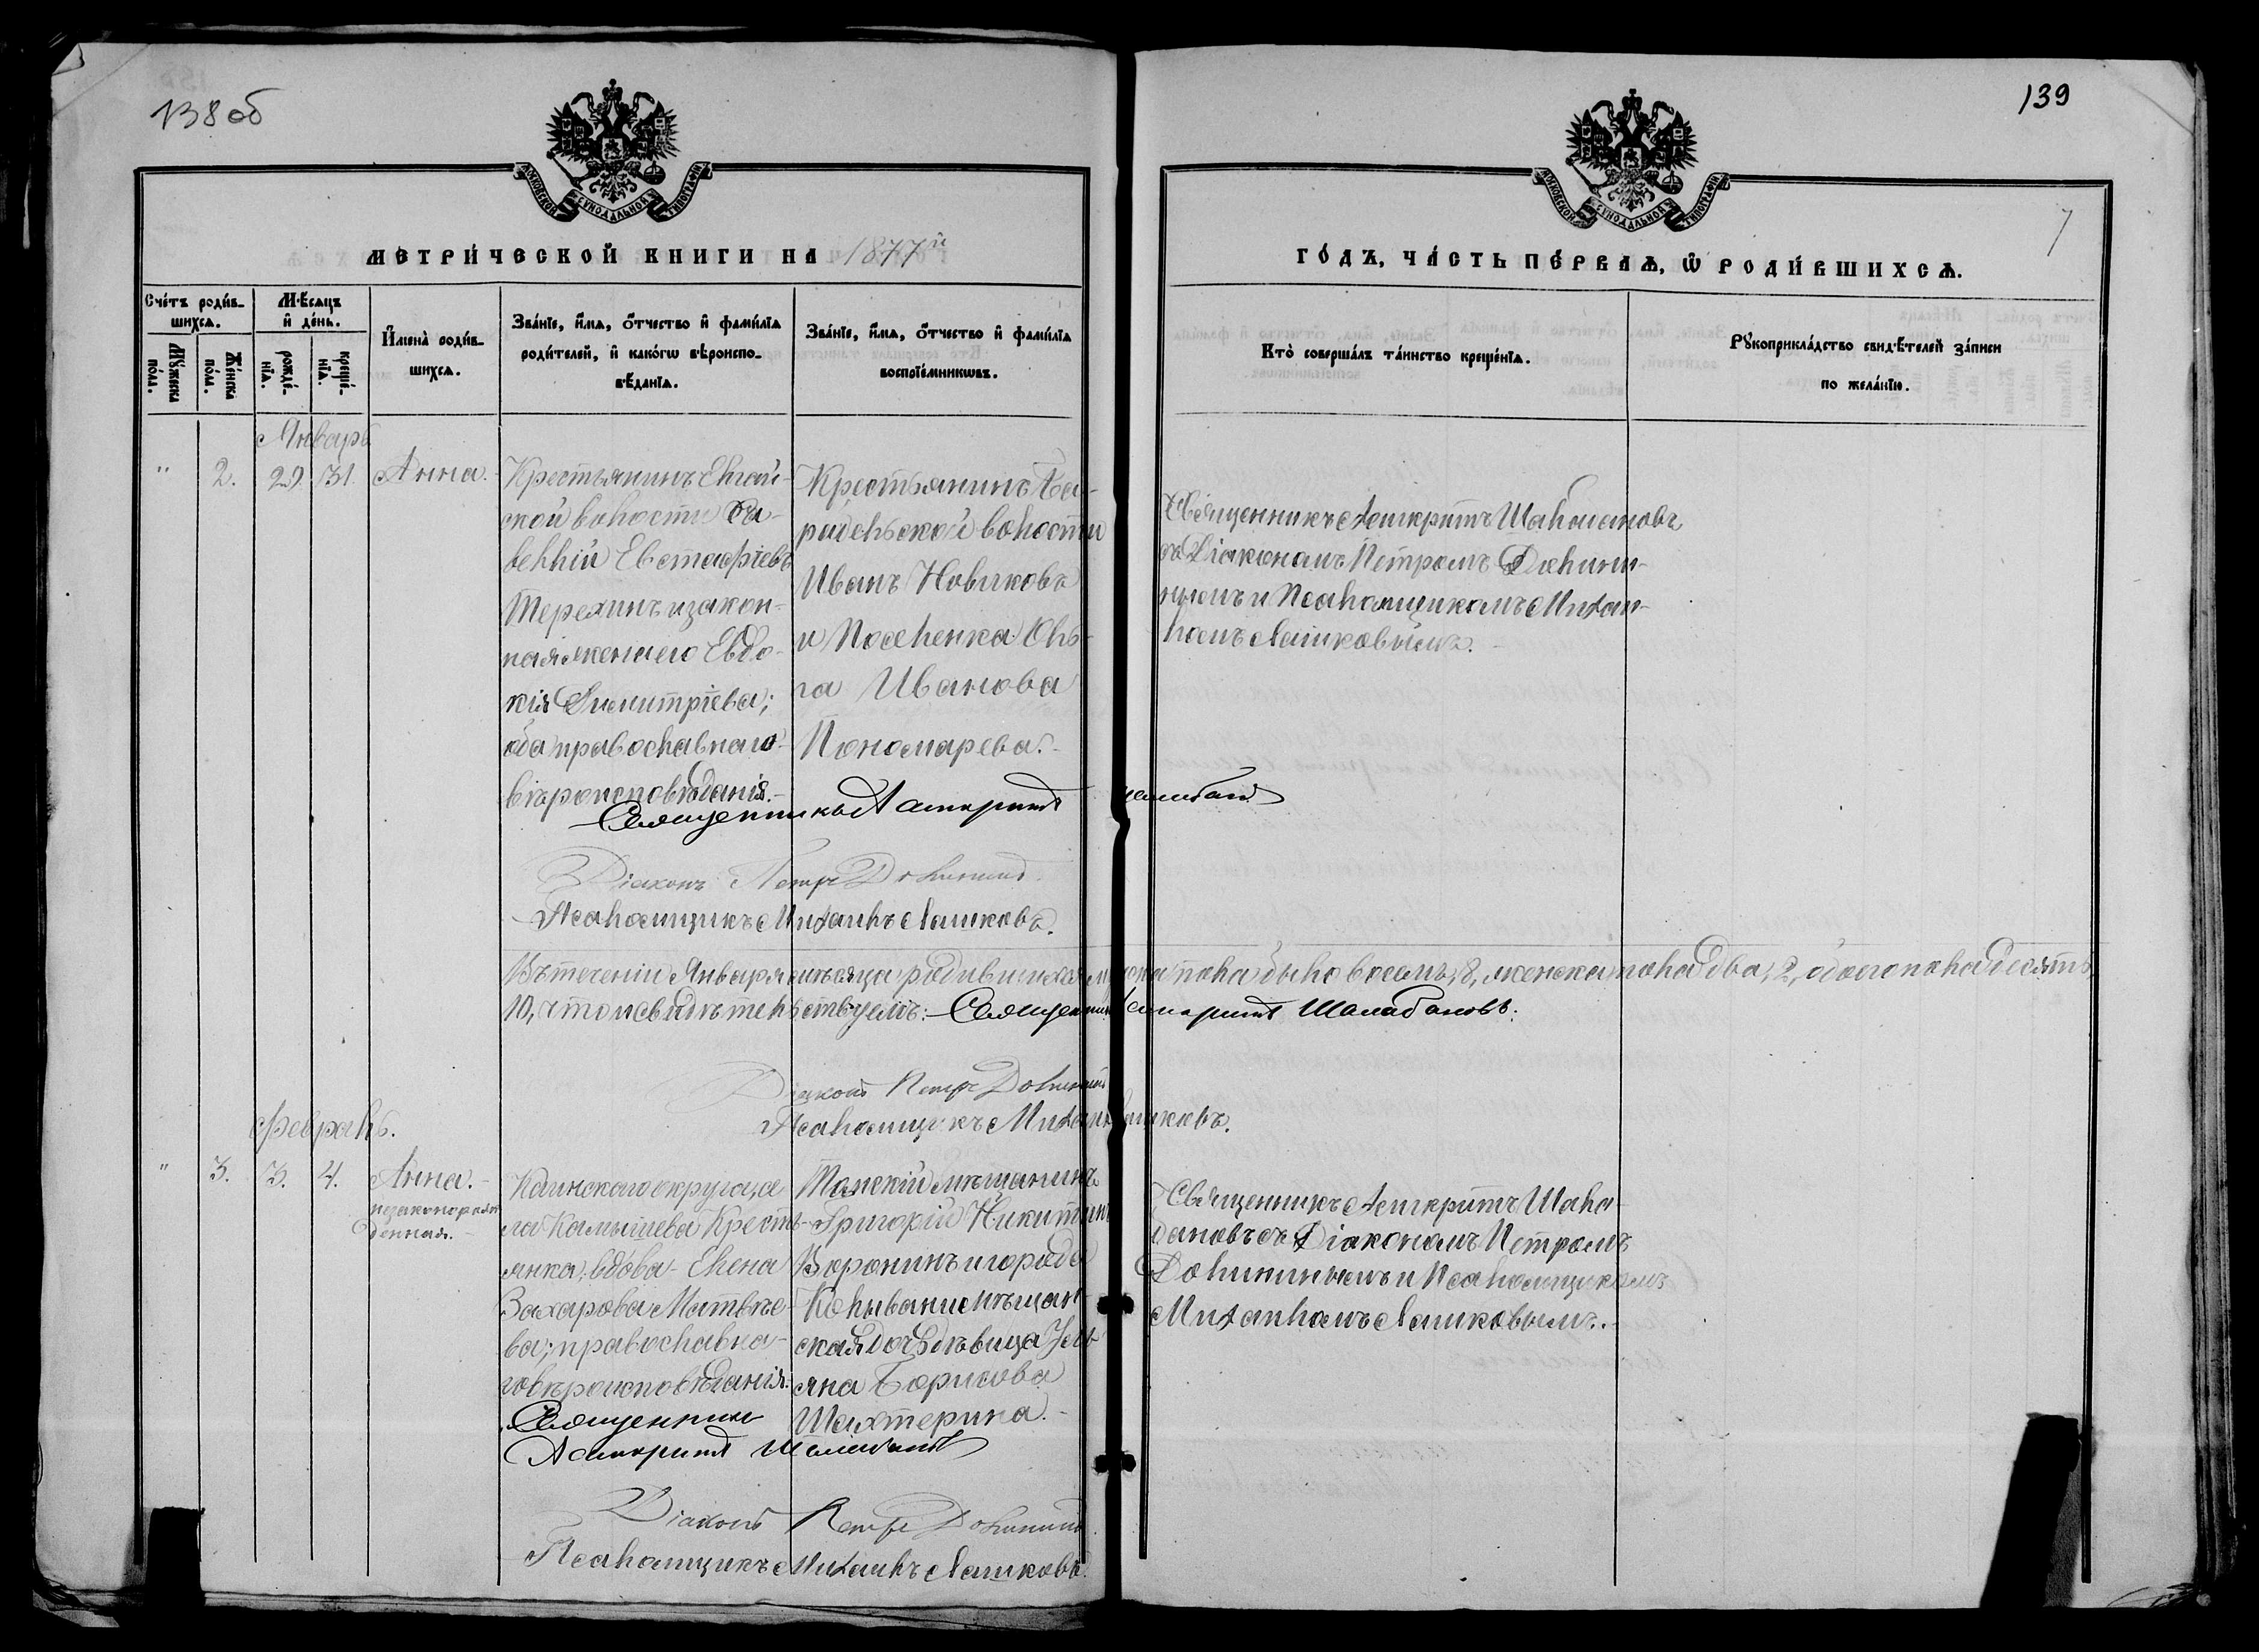 138 об
139
7
МОСКОВСКОЙ СѴНОДАЛЬНОЙ ТИПОГРАФІИ
МОСКОВСКОЙ СѴНОДАЛЬНОЙ ТИПОГРАФІИ
МЕТРИ́ЧЕСКОЙ КНИГИ НА 1877й
ГО́ДЪ, ЧА́СТЬ ПЕ́РВАѦ, Ѡ҆ РОДИ́ВШИХСѦ.
Сче́тъ роди́в-
шихсѧ.
Мꙋ́жеска по́ла.
Же́нска по́ла.
Мѣ́сѧцъ
и҆ де́нь.
рожде́-
нїѧ.
креще́-
нїѧ.
И҆мена̀ роди́в-
шихсѧ.
Зва́нїе, и҆́мѧ, ѻ҆́тчество и҆ фами́лїѧ
роди́телей, и҆ како́гѡ вѣроиспо-
вѣ́данїѧ.
Зва́нїе, и҆́мѧ, ѻ҆́тчество и҆ фами́лїѧ
воспрїе́мникѡвъ.
Кто̀ соверша́лъ та́инство креще́нїѧ.
Рꙋкоприкла́дство свидѣ́телей за́писи
по жела́нїю.
Январь
" 2. 29. 31. Анна.
Крестьянинъ
ской волости Са-
велій Евстафіевъ
Терехинъ и закон-
ная жена его Евдо-
кія Димитріева;
оба православнаго
вѣроисповѣданія.-
Крестьянинъ
волости
Иванъ Новиковъ
и Поселенка Оль-
га Иванова
Пономарева.-
Священникъ Асигкритъ Шалобановъ
съ Діакономъ Петромъ Долини-
нымъ и Псаломщикомъ Михаи-
ломъ Лашковымъ.-
Священникъ Асигкритъ
Діаконъ Петръ Долининъ.
Псаломщикъ Михаилъ Лашковъ.
Въ теченіи Января мѣсяца родившихся мужска пола было восемь, 8, женска пола два, 2, обоего пола десять
10, что и свидѣтельствуемъ:- Священникъ Асигкритъ Шалабановъ.
Діаконъ Петръ Долининъ
Псаломщикъ Михаилъ Лашковъ.
Февраль.
" 3. 3. 4. Анна.-
незаконорож-
денная.-
Каинскаго округа се
ла Камышева Кресть-
янка, вдова Елена
Захарова Матвѣе-
ва; православна-
го вѣроисповѣданія.
Томскій мѣщанинъ
Григорій Никитинъ
Воронинъ и города
Колывани мѣщан-
ская дочь дѣвица Уль-
яна Борисова
Шахтерина.-
Священникъ Асигкритъ Шала-
бановъ съ Діакономъ Петромъ
Долининымъ и Псаломщикомъ
Михаиломъ Лашковымъ.-
Священникъ
Асигкритъ Шалабановъ
Діаконъ Петръ Долининъ.
Псаломщикъ Михаилъ Лашковъ.